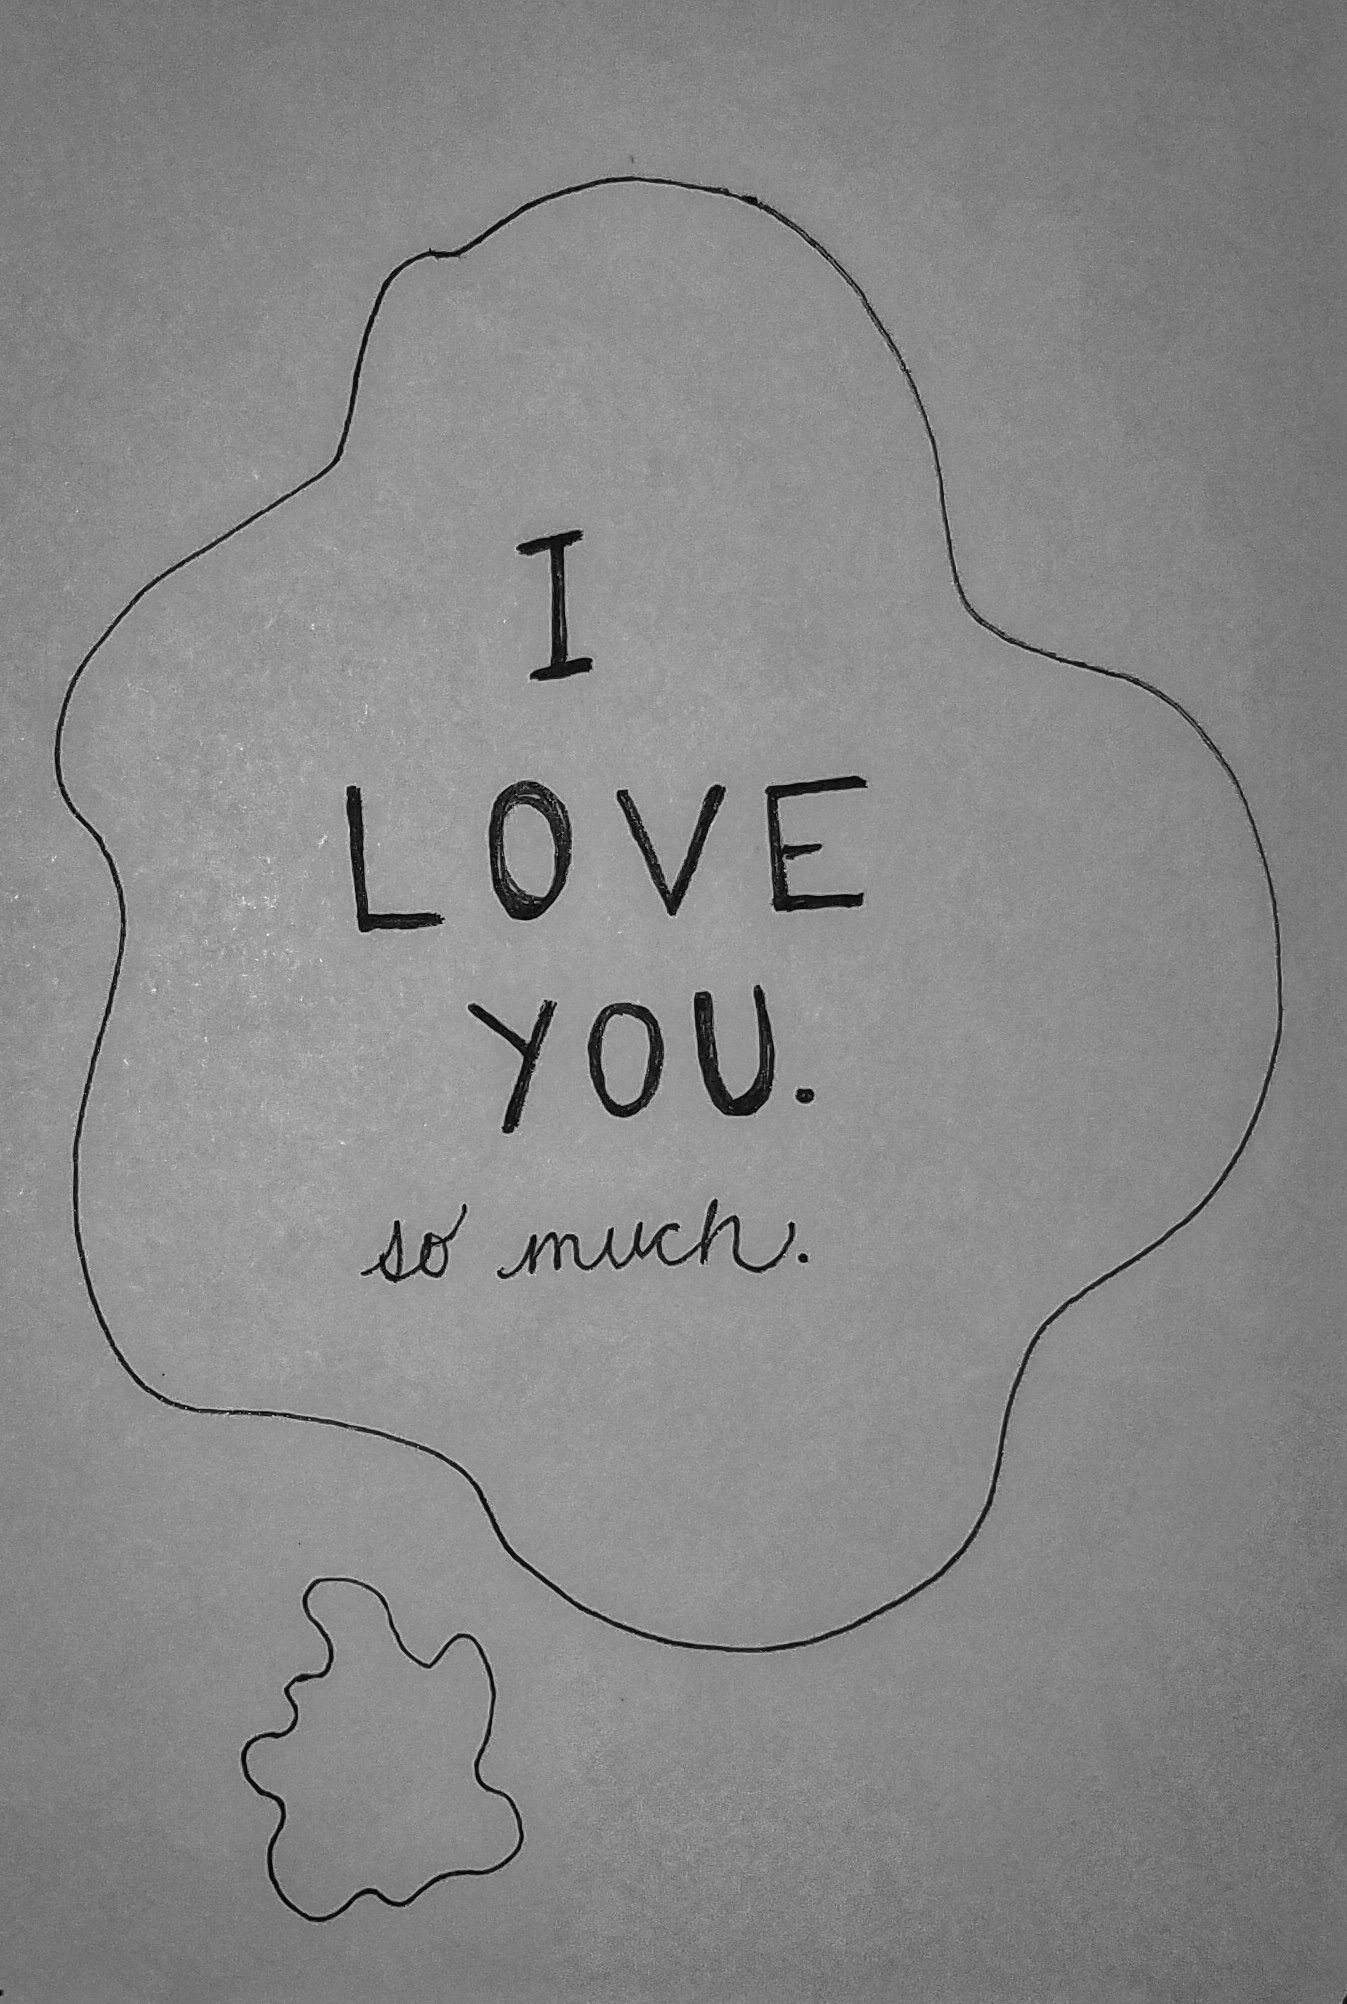 I
LOVE
YOU.
so much.